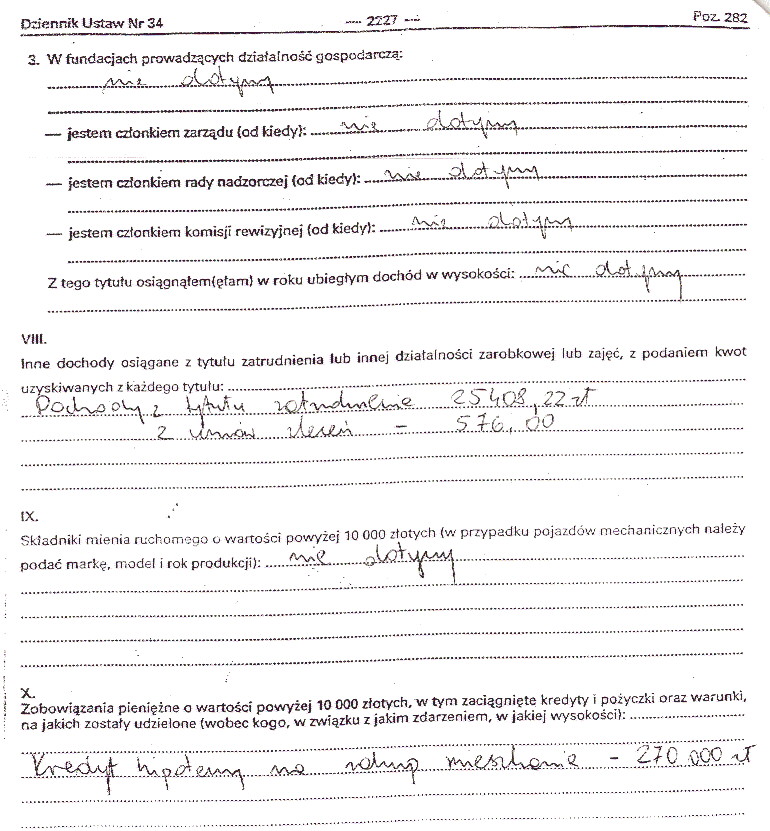 Dziennik Ustaw Nr 34 — 2227 — Poz. 282
3. W fundacjach prowadzących działalność gospodarczą:
nie dotyczy
— jestem członkiem zarządu (od kiedy): nie dotyczy
— jestem członkiem rady nadzorczej (od kiedy): nie dotyczy
— jestem członkiem komisji rewizyjnej (od kiedy): nie dotyczy
Z tego tytułu osiągnąłem(ęłam) w roku ubiegłym dochód w wysokości: nie dotyczy
VIII.
Inne dochody osiągane z tytułu zatrudnienia lub innej działalności zarobkowej lub zajęć, z podaniem kwot
uzyskiwanych z każdego tytułu:
Dochody z tytułu zatrudnienie 25408,22 zł
z umów zleceń – 576,00
IX.
Składniki mienia ruchomego o wartości powyżej 10 000 złotych (w przypadku pojazdów mechanicznych należy
podać markę, model i rok produkcji): nie dotyczy
X.
Zobowiązania pieniężne o wartości powyżej 10 000 złotych, w tym zaciągnięte kredyty i pożyczki oraz warunki,
na jakich zostały udzielone (wobec kogo, w związku z jakim zdarzeniem, w jakiej wysokości):
Kredyt hipoteczny na zakup mieszkanie – 270 000 zł